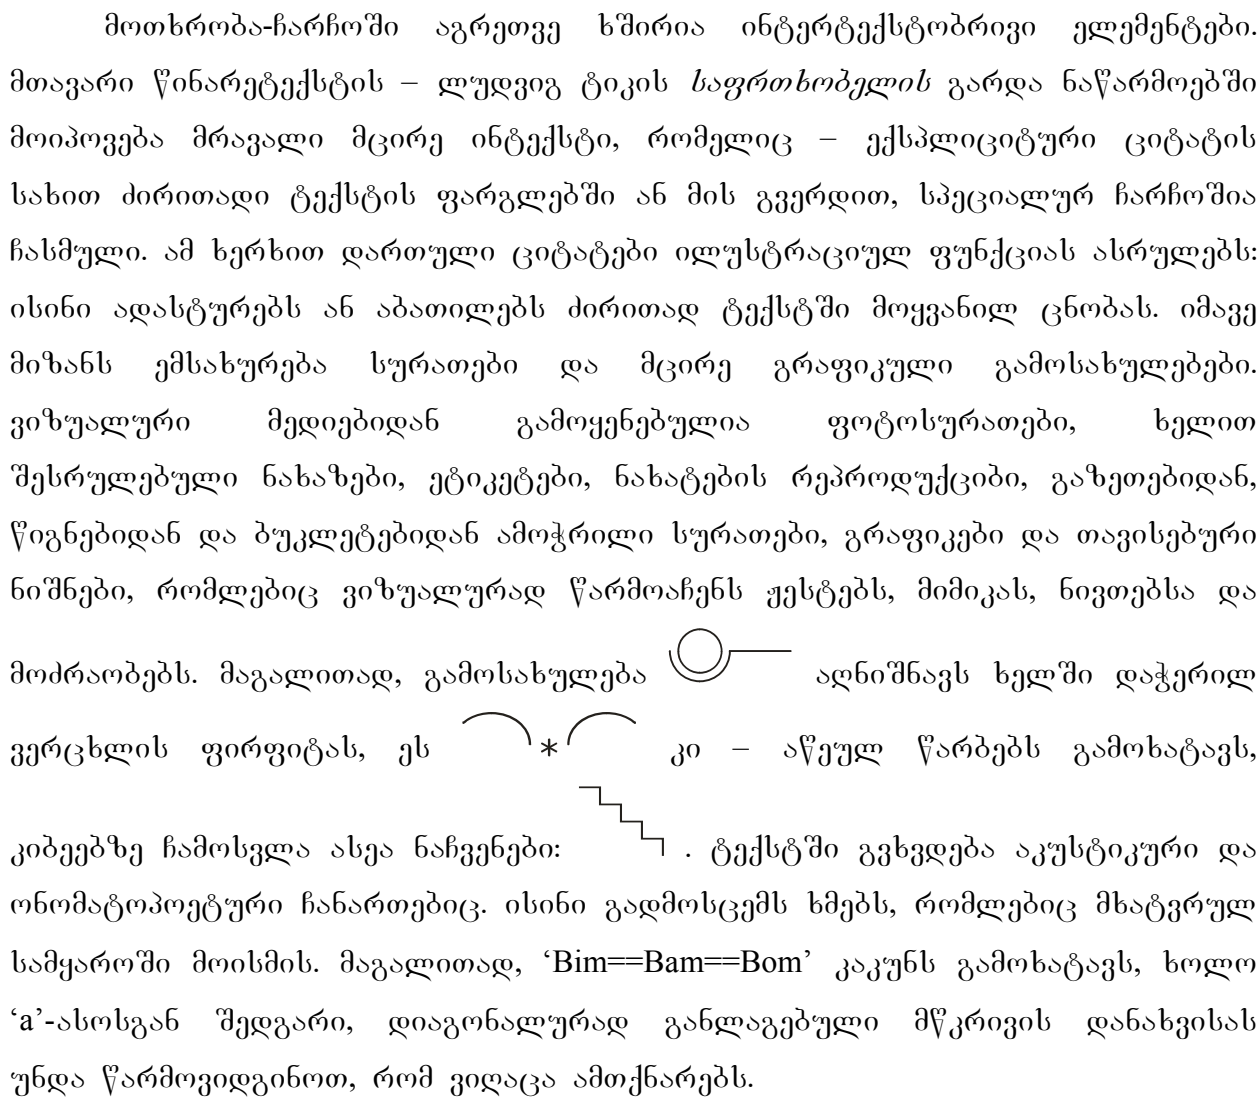 მოთხრობა-ჩარჩოში აგრეთვე ხშირია ინტერტექსტობრივი ელემენტები.
მთავარი წინარეტექსტის – ლუდვიგ ტიკის საფრთხობელის გარდა ნაწარმოებში
მოიპოვება მრავალი მცირე ინტექსტი, რომელიც – ექსპლიციტური ციტატის
სახით ძირითადი ტექსტის ფარგლებში ან მის გვერდით, სპეციალურ ჩარჩოშია
ჩასმული. ამ ხერხით დართული ციტატები ილუსტრაციულ ფუნქციას ასრულებს:
ისინი ადასტურებს ან აბათილებს ძირითად ტექსტში მოყვანილ ცნობას. იმავე
მიზანს ემსახურება სურათები და მცირე გრაფიკული გამოსახულებები.
ვიზუალური მედიებიდან გამოყენებულია ფოტოსურათები, ხელით
შესრულებული ნახაზები, ეტიკეტები, ნახატების რეპროდუქციბი, გაზეთებიდან,
წიგნებიდან და ბუკლეტებიდან ამოჭრილი სურათები, გრაფიკები და თავისებური
ნიშნები, რომლებიც ვიზუალურად წარმოაჩენს ჟესტებს, მიმიკას, ნივთებსა და
მოძრაობებს. მაგალითად, გამოსახულება აღნიშნავს ხელში დაჭერილ
ვერცხლის ფირფიტას, ეს * კი – აწეულ წარბებს გამოხატავს,
კიბეებზე ჩამოსვლა ასეა ნაჩვენები: . ტექსტში გვხვდება აკუსტიკური და
ონომატოპოეტური ჩანართებიც. ისინი გადმოსცემს ხმებს, რომლებიც მხატვრულ
სამყაროში მოისმის. მაგალითად, ‘Bim==Bam==Bom’ კაკუნს გამოხატავს, ხოლო
‘a’-ასოსგან შედგარი, დიაგონალურად განლაგებული მწკრივის დანახვისას
უნდა წარმოვიდგინოთ, რომ ვიღაცა ამთქნარებს.